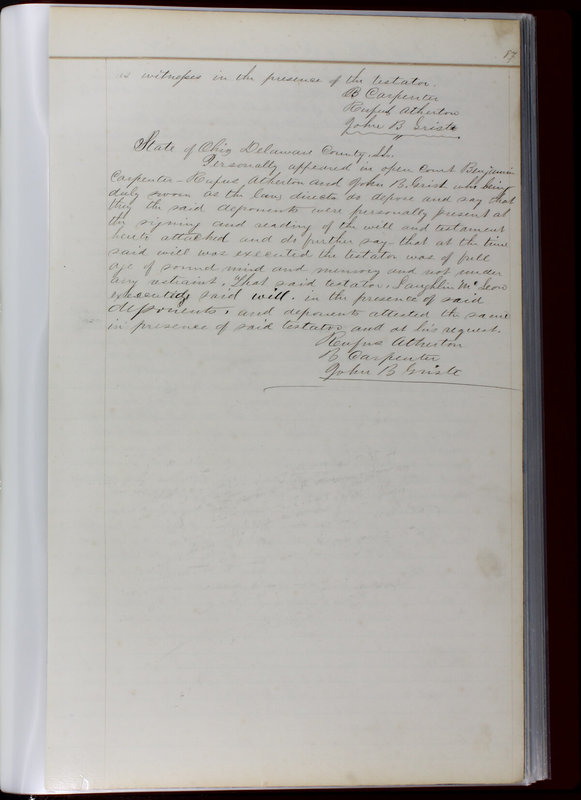 87
as witnesses in the presence of the testator.
B Carpenter
Rufus Atherton
John B Griste
State of Ohio Delaware County, Ss.
Personally appeared in open Court Benjamin
Carpenter - Rufus Atherton and John B. Grist who being
duly sworn as the law directs do depose and say that
they the said deponents were personally present at
the signing and reading of the will and testament
hereto attached and do further say that at the time
said will was executed the testator was of full
age of sound mind and memory and not under
any restraint, That said testator, Laughlin Mc Leod
executed said will. in the presence of said
deponents, and deponents attested the same
in presence of said testator and at his request.
Rufus Atherton
B Carpenter
John B Griste